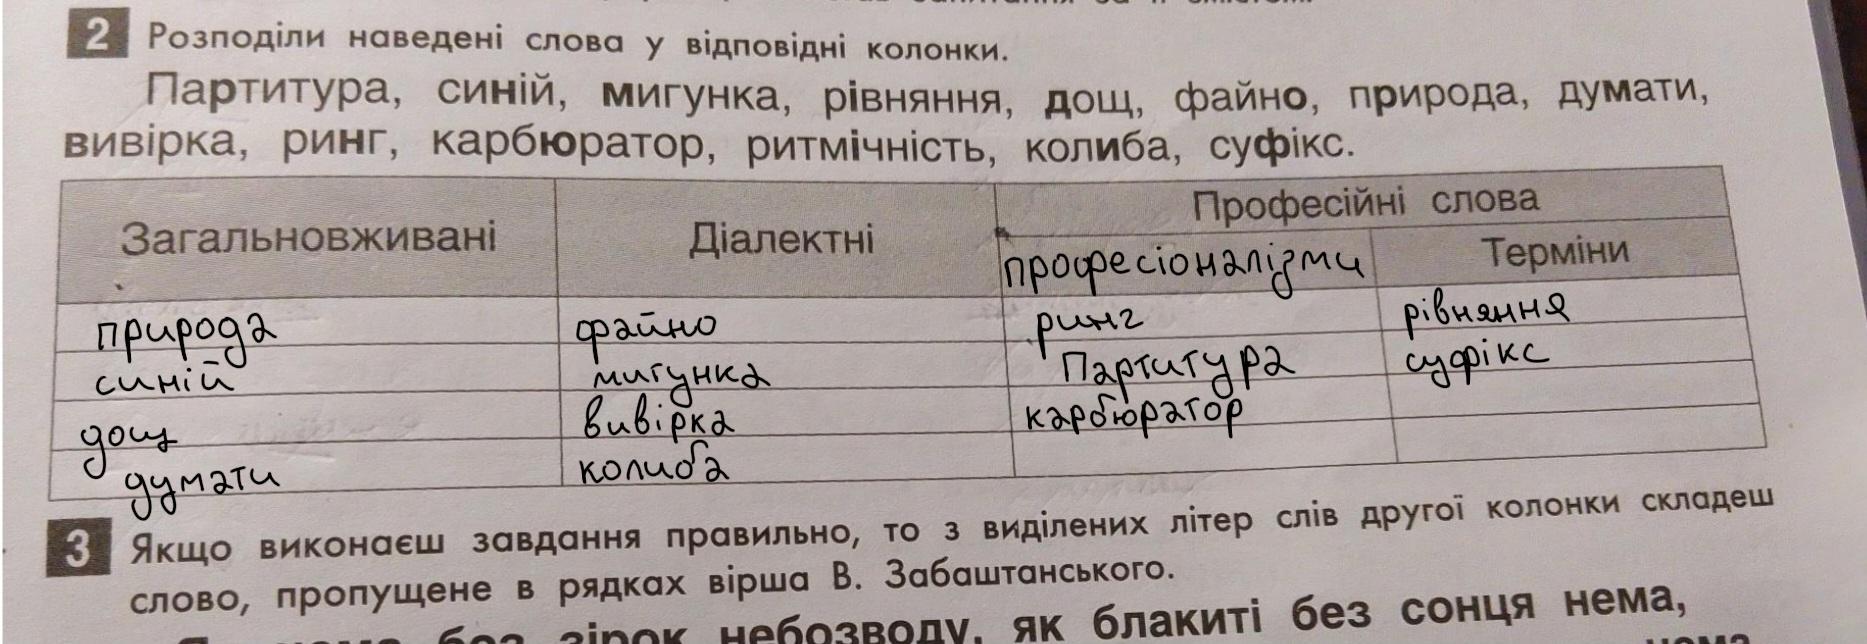 2 Розподіли наведені слова у відповідні колонки.
Партитура, синій, мигунка, рівняння, дощ, файно, природа, думати,
вивірка, ринг, карбюратор, ритмічність, колиба, суфікс.
Загальновживані Діалектні Професійні слова
професіоналізми Терміни
природа файно ринг рівняння
синій мигунка Партитура суфікс
дощ вивірка карбюратор
думати колиба
3 Якщо виконаєш завдання правильно, то з виділених літер слів другої колонки складеш
слово, пропущене в рядках вірша В. Забаштанського.
без зірок небозводу, як блакиті без сонця нема,